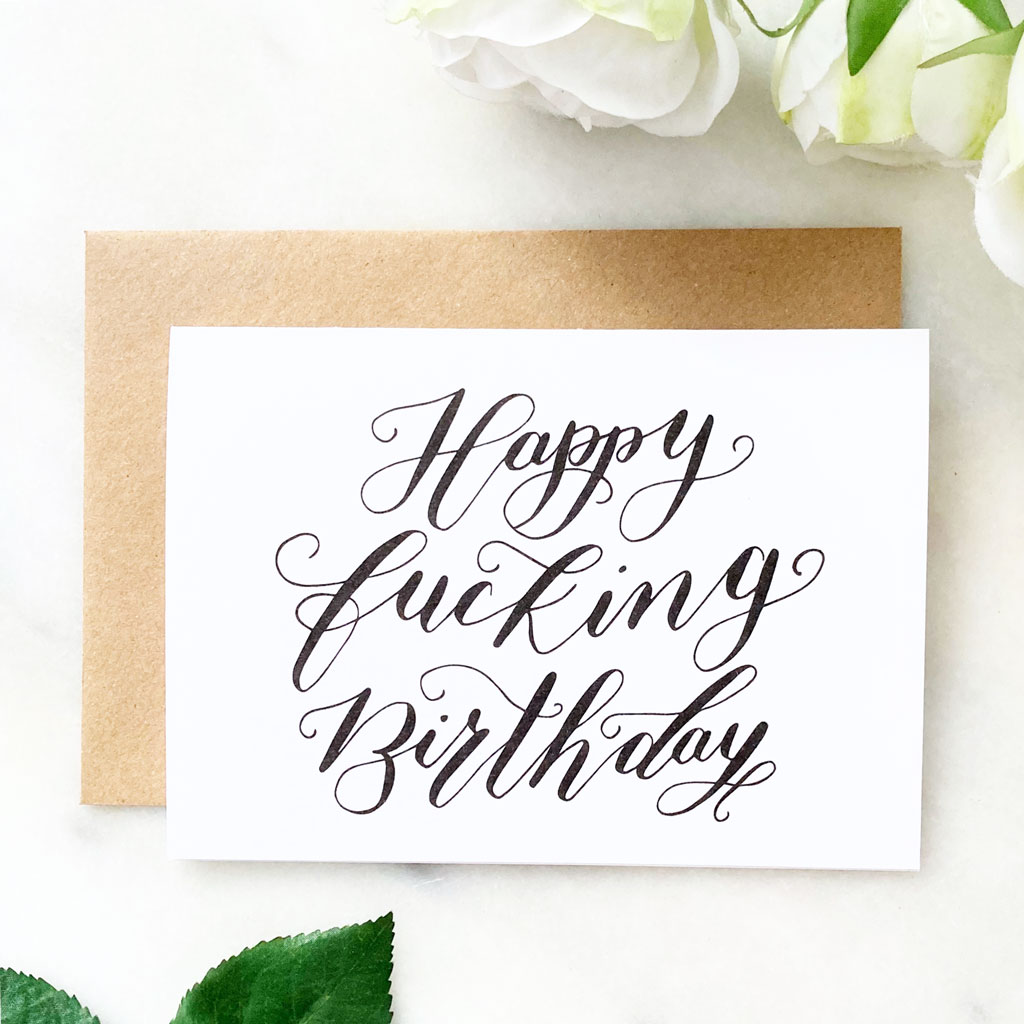 Happy
fucking
Birthday